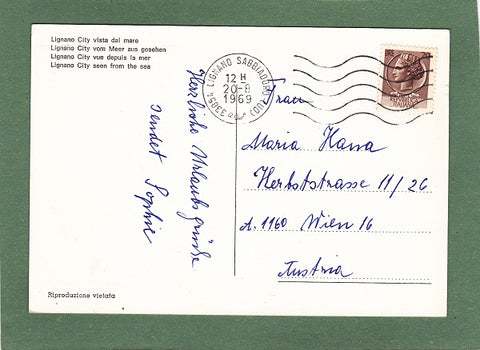 Lignano City vista dal mare
Lignano City vom Meer aus gesehen
Lignano City vue depuis la mer
Lignano City seen from the sea
33054 LIGNANO SABBIADORO (UD)
12 H
20-8
1969
Frau
Maria Hanna
Herbststrasse 11/26
A. 1160 Wien 16
Austria
Herzliche Urlaubsgrüße
sendet Sophie
Riproduzione vietata